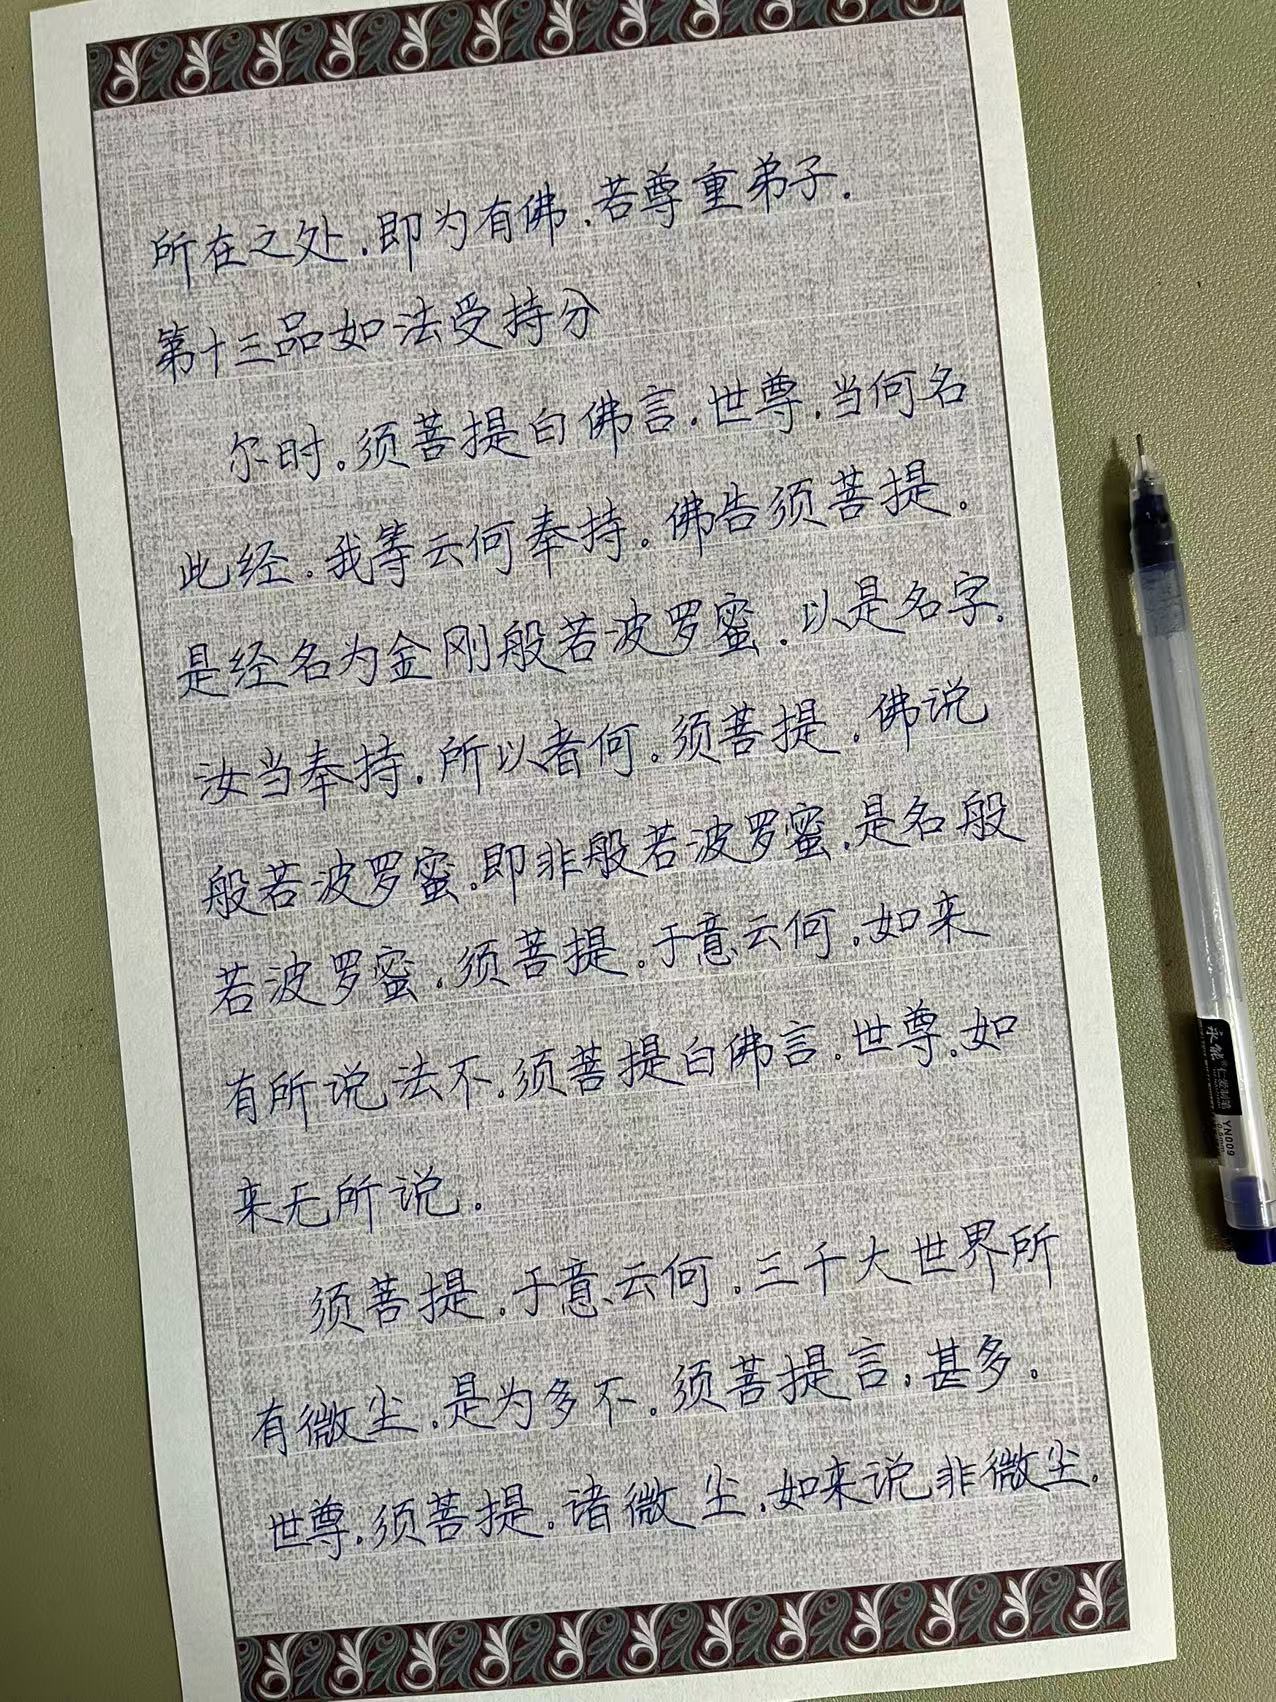 所在之处.即为有佛.若尊重弟子.
第十三品如法受持分
尔时。须菩提白佛言.世尊.当何名
此经.我等云何奉持。佛告须菩提.
是经名为金刚般若波罗蜜.以是名字.
汝当奉持.所以者何.须菩提.佛说
般若波罗蜜.即非般若波罗蜜.是名般
若波罗蜜.须菩提.于意云何.如来
有所说法不.须菩提白佛言.世尊.如
来无所说.
须菩提.于意云何.三千大世界所
有微尘.是为多不.须菩提言.甚多.
世尊.须菩提.诸微尘.如来说非微尘.
永能
YN009